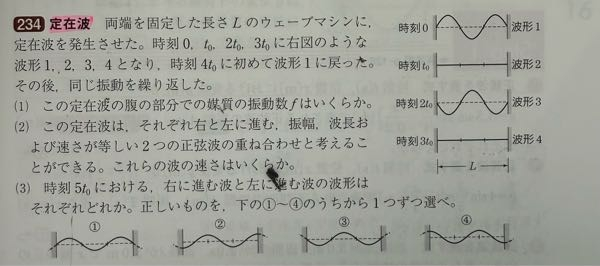 234 定在波 両端を固定した長さLのウェーブマシンに,
定在波を発生させた。時刻0, t₀, 2t₀, 3t₀に右図のような
波形1, 2, 3, 4となり, 時刻4t₀に初めて波形1に戻った。
その後, 同じ振動を繰り返した。
(1) この定在波の腹の部分での媒質の振動数fはいくらか。
(2) この定在波は, それぞれ右と左に進む, 振幅, 波長お
よび速さが等しい2つの正弦波の重ね合わせと考えるこ
とができる。これらの波の速さはいくらか。
(3) 時刻5t₀における, 右に進む波と左に進む波の波形は
それぞれどれか。正しいものを, 下の①~④のうちから1つずつ選べ。
時刻0 波形1
時刻t₀ 波形2
時刻2t₀ 波形3
時刻3t₀ 波形4
L
① ② ③ ④